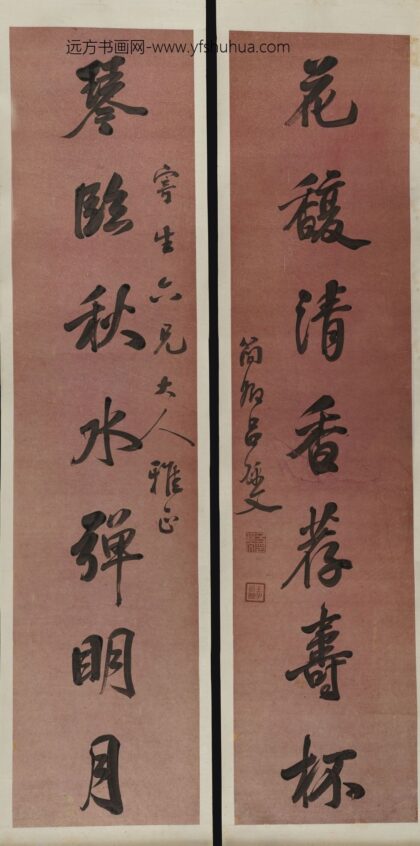 远方书画网-www.yfshuhua.com
花馥清香荐壽杯
筒伯吕
琴臨秋水弹明月
寄生六兄大人雅正